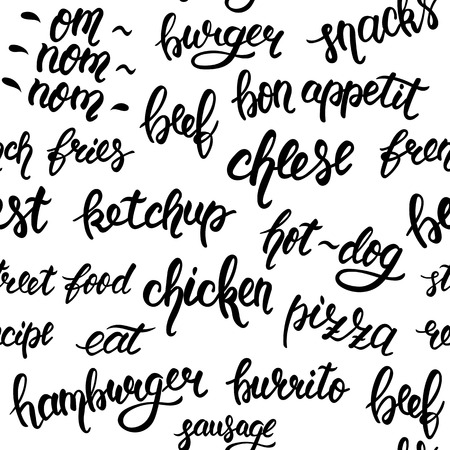 om~
nom~
nom
burger
snacks
beef
bon appetit
ch fries
cheese
fren
est
ketchup
be
hot~dog
reet food
chicken
st
pizza
cipe
eat
re
hamburger
burrito
beef
sausage